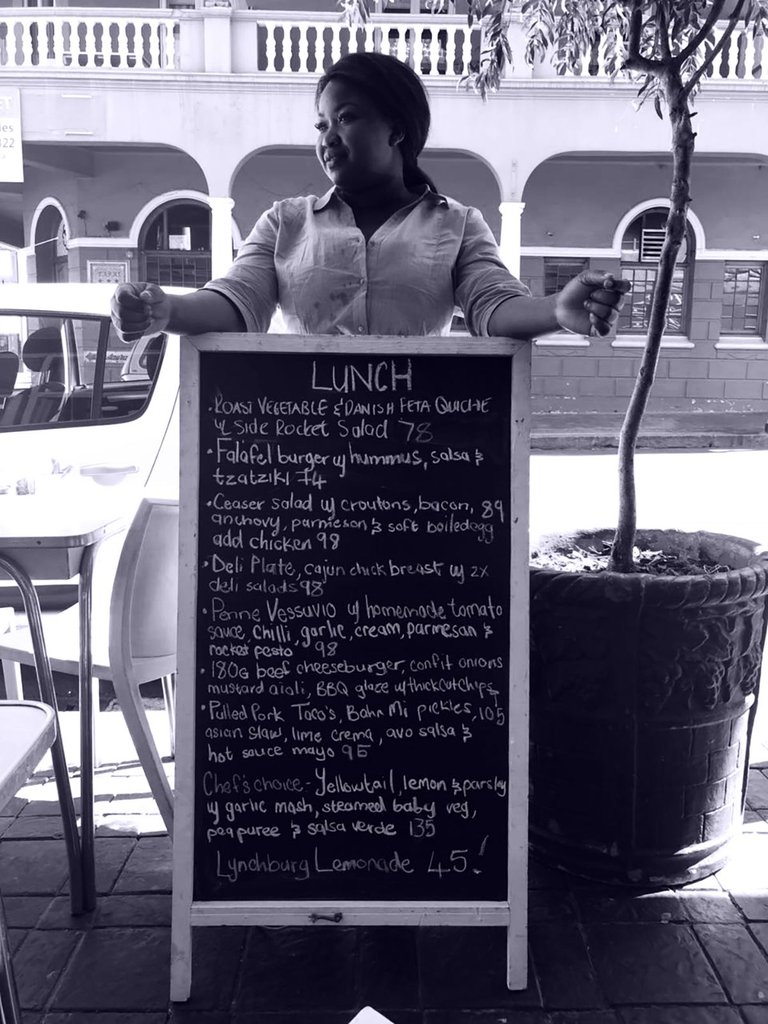 LUNCH
• ROAST VEGETABLE & DANISH FETA QUICHE
w/ SIDE ROCKET SALAD 78
• Falafel burger w/ hummus, salsa &
tzatziki 74
• Ceaser salad w/ croutons, bacon, 89
anchovy, parmesan & soft boiled egg
add chicken 98
• Deli Plate, cajun chick breast w/ 2x
deli salads 98
• Penne Vessuvio w/ homemade tomato
sauce, chilli, garlic, cream, parmesan &
rocket pesto 98
• 180g beef cheeseburger, confit onions
mustard aioli, BBQ glaze w/ thick cut chips
• Pulled Pork Taco's, Bahn Mi pickles, 105
asian slaw, lime crema, avo salsa &
hot sauce mayo 95
Chef's choice - Yellowtail, lemon & parsley
w/ garlic mash, steamed baby veg,
pea puree & salsa verde 135
Lynchburg Lemonade 45!
ET
ies
22